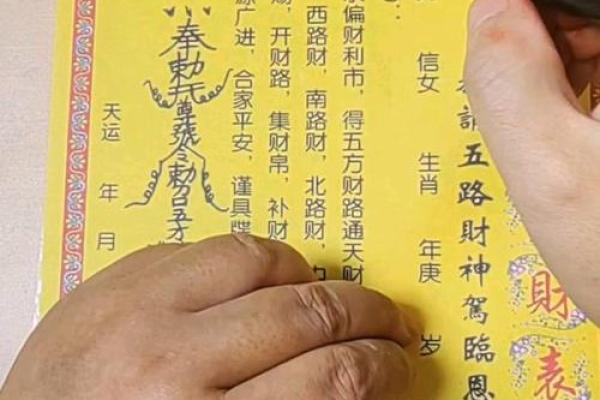 財表
請五路財神駕臨恩
信女 生肖 年庚 岁
偏财利市，得五方财路通天财
西路财，南路财，北路财，
，开财路，集财帛，补财
源广进，合家平安，谨具牒
奉勅
天运 年 月